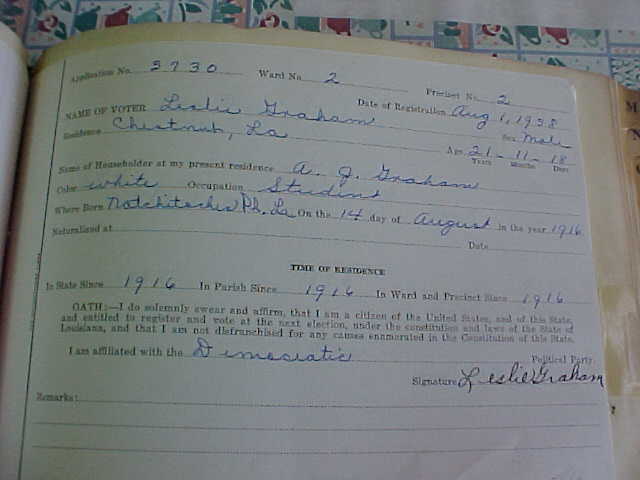 Application No. 3730 Ward No. 2 Precinct No. 2
NAME OF VOTER Leslie Graham Date of Registration Aug 1, 1938
Residence Chestnut, La Sex Male
Age 21 - 11 - 18
Years Months Days
Name of Householder at my present residence A. J. Graham
Color white Occupation Student
Where Born Natchitoches Ph. La On the 14 day of August in the year 1916
Naturalized at Date
TIME OF RESIDENCE
In State Since 1916 In Parish Since 1916 In Ward and Precinct Since 1916
OATH:—I do solemnly swear and affirm, that I am a citizen of the United States, and of this State,
and entitled to register and vote at the next election, under the constitution and laws of the State of
Louisiana, and that I am not disfranchised for any causes enumerated in the Constitution of this State.
I am affiliated with the Democratic Political Party.
Signature Leslie Graham
Remarks: